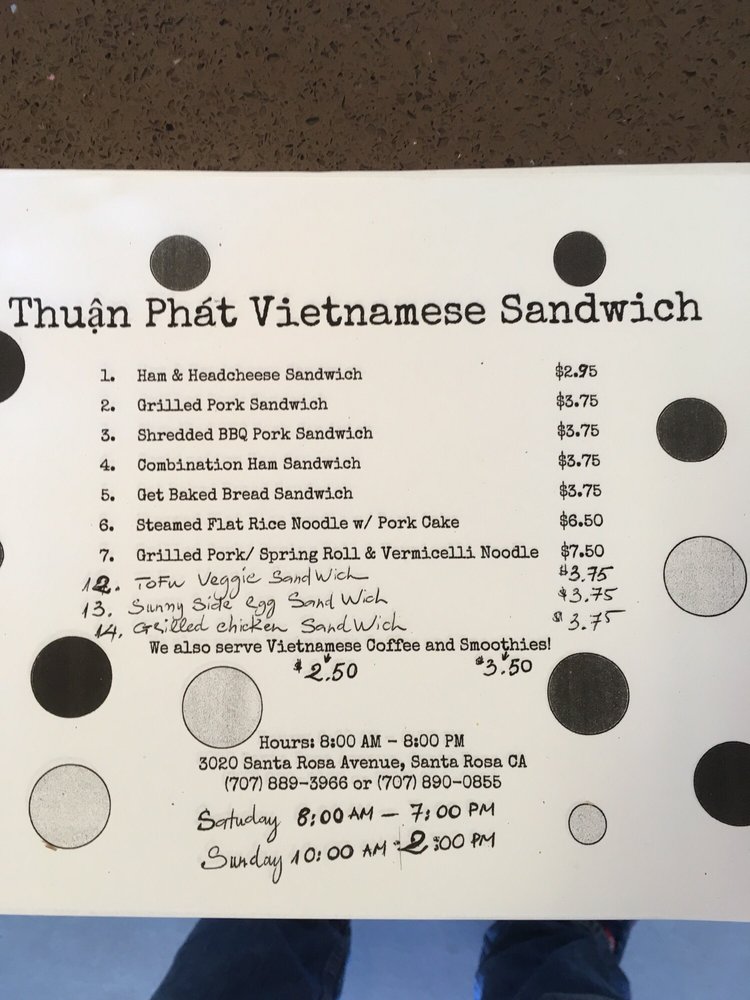 Thuận Phát Vietnamese Sandwich
1. Ham & Headcheese Sandwich $2.95
2. Grilled Pork Sandwich $3.75
3. Shredded BBQ Pork Sandwich $3.75
4. Combination Ham Sandwich $3.75
5. Get Baked Bread Sandwich $3.75
6. Steamed Flat Rice Noodle w/ Pork Cake $6.50
7. Grilled Pork/ Spring Roll & Vermicelli Noodle $7.50
12. ToFu Veggie SandWich $3.75
13. Sunny Side egg SandWich $3.75
14. Grilled chicken SandWich $3.75
We also serve Vietnamese Coffee and Smoothies!
$2.50 $3.50
Hours: 8:00 AM - 8:00 PM
3020 Santa Rosa Avenue, Santa Rosa CA
(707) 889-3966 or (707) 890-0855
Satuday 8:00 AM - 7:00 PM
Sunday 10:00 AM - 2:00 PM